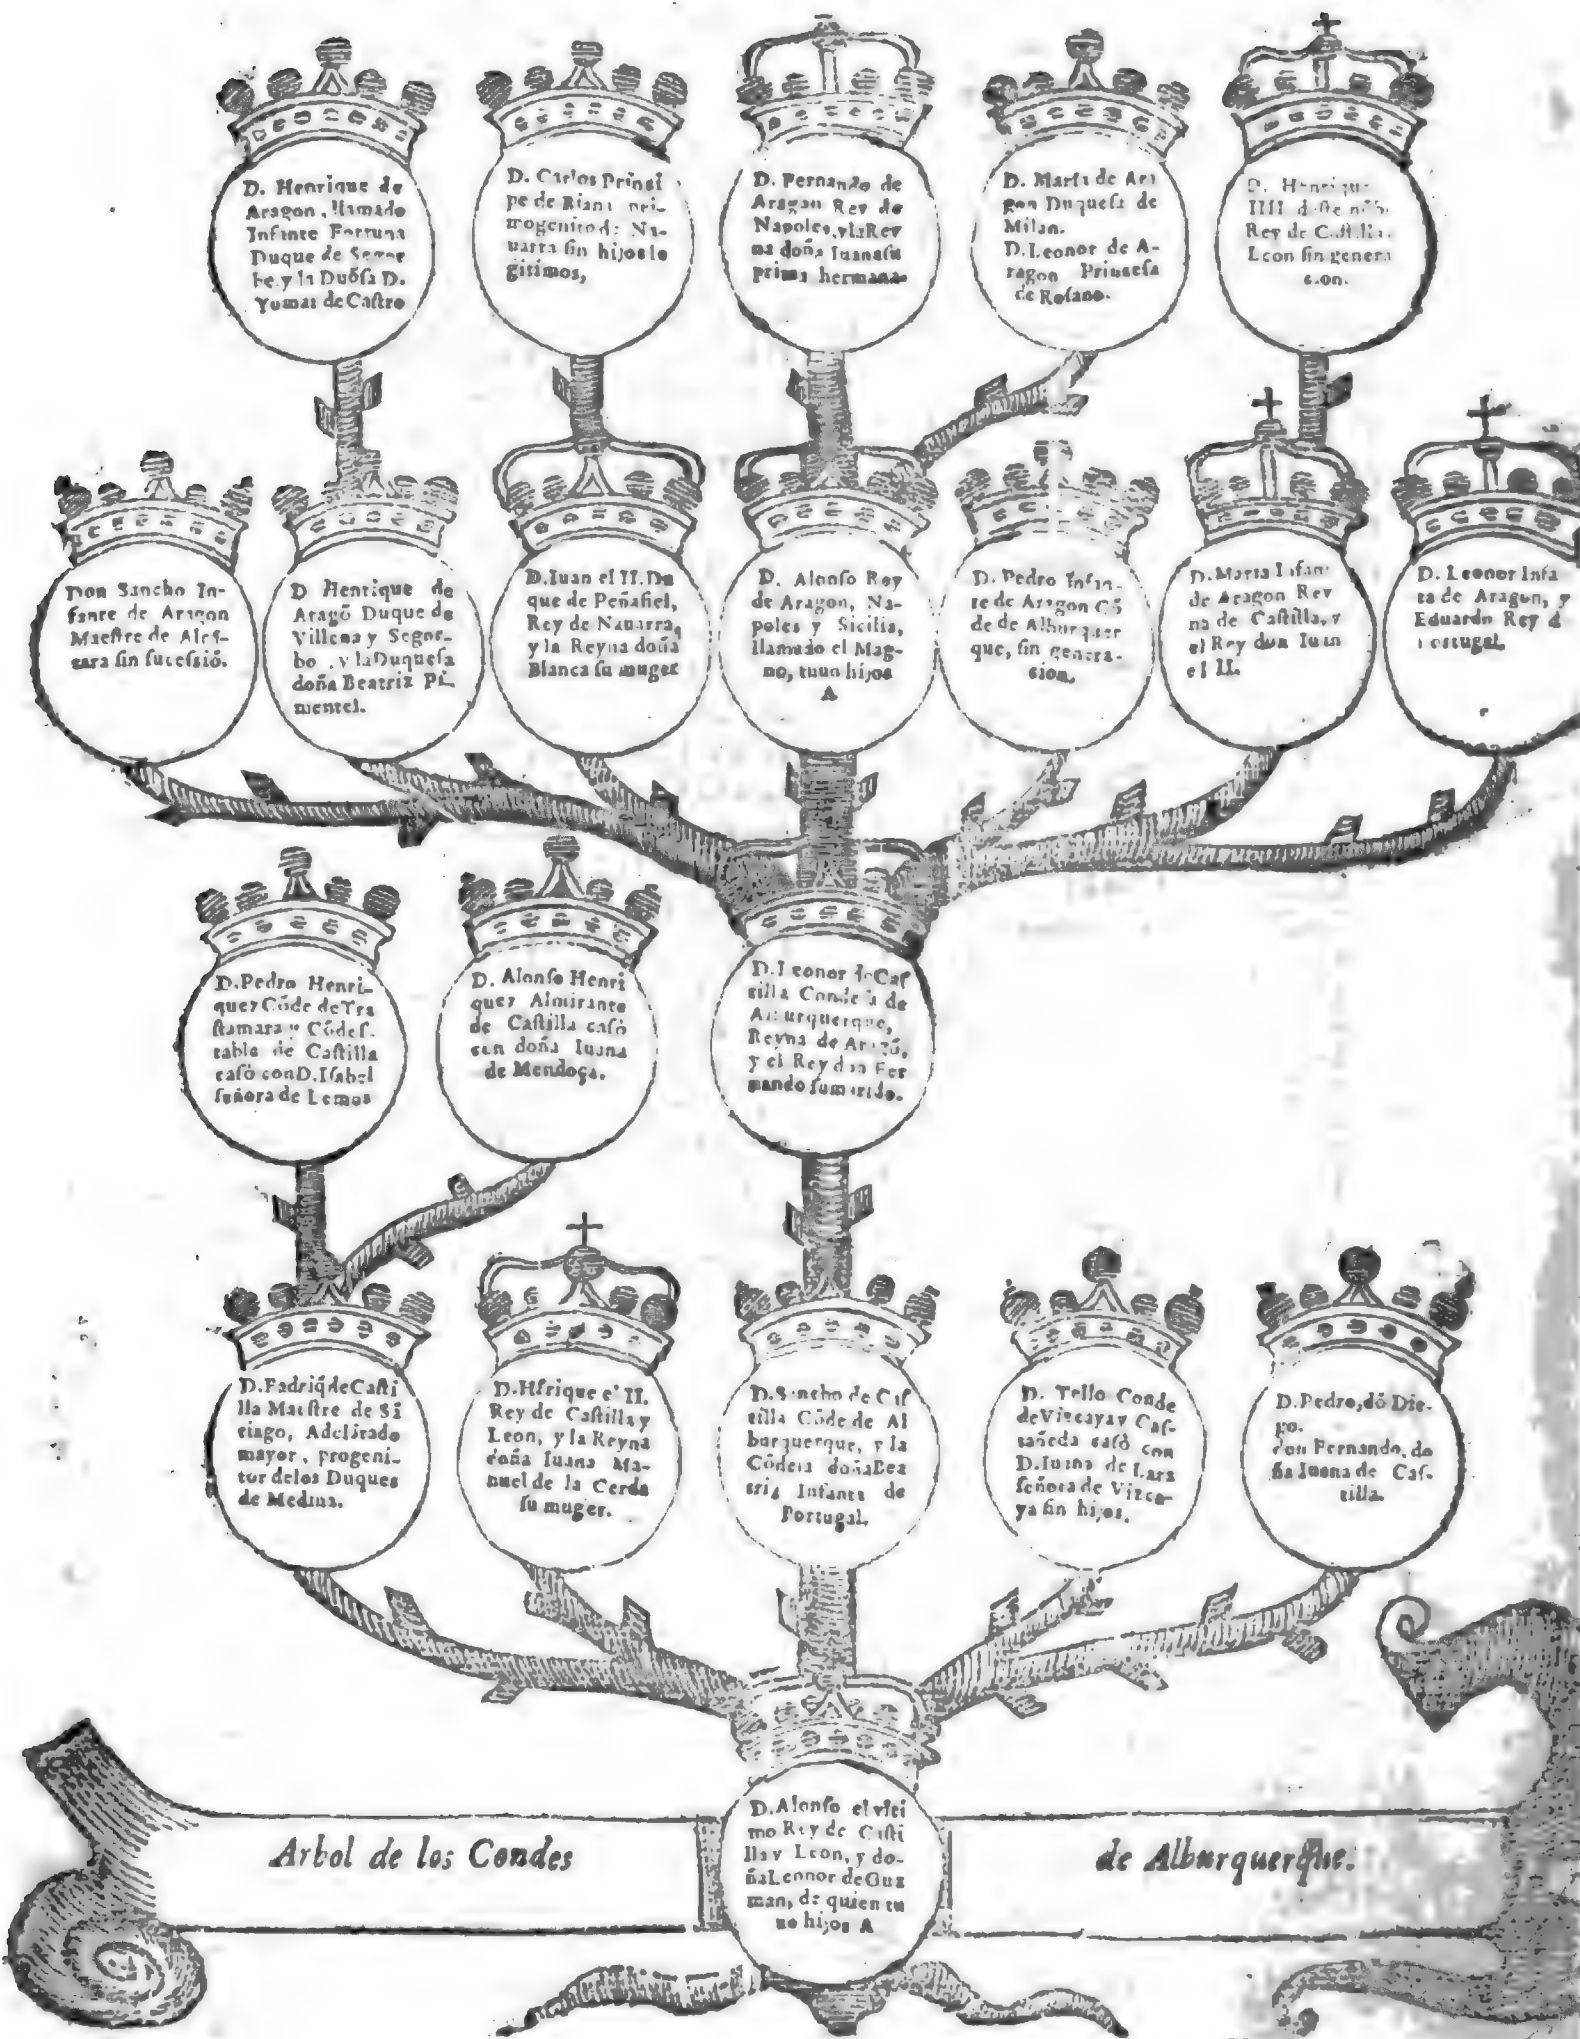 D. Henrique de
Aragon, llamado
Infante Fortuna
Duque de Segor
be, y la Duq̃sa D.
Yomar de Castro
D. Carlos Princi
pe de Biana pri-
mogenito d: Na-
uarra sin hijos le
gitimos,
D. Fernando de
Aragon Rey de
Napoles, y la Rey
na doña Iuana su
prima hermana.
D. Maria de Ara
gon Duquesa de
Milan.
D. Leonor de A-
ragon Princesa
de Rosano.
D. Henrique
IIII. deste nōb.
Rey de Castilla.
Leon sin genera
cion.
Don Sancho In-
fante de Aragon
Maestre de Alcā-
tara sin sucessiō.
D Henrique de
Aragō Duque de
Villena y Segor-
bo, y la Duquesa
doña Beatriz Pi_
mentel.
D. Iuan el II. Du
que de Peñafiel,
Rey de Nauarra,
y la Reyna doña
Blanca su muger
D. Alonso Rey
de Aragon, Na-
poles y Sicilia,
llamado el Mag-
no, tuuo hijos
A
D. Pedro Infan-
te de Aragon Cō
de de Alburquer
que, sin genera-
cion.
D. Maria Infan
de Aragon Rey
na de Castilla, y
el Rey don Iuan
el II.
D. Leonor Infa
ta de Aragon, y
Eduardo Rey d
Portugal.
D. Pedro Henri-
quez Cōde de Tra
stamara y Cōdes-
table de Castilla
casò con D. Isabel
señora de Lemos
D. Alonso Henri
quez Almirante
de Castilla casò
con doña Iuana
de Mendoça.
D. Leonor de Cas
tilla Condesa de
Alburquerque,
Reyna de Aragō,
y el Rey don Fer
nando su marido.
D. Fadriq̃ de Casti
lla Maestre de Sā
tiago, Adelātado
mayor, progeni-
tor de los Duques
de Medina.
D. Hērique el II.
Rey de Castilla y
Leon, y la Reyna
doña Iuana Ma-
nuel de la Cerda
su muger.
D. Sancho de Cas
tilla Cōde de Al
burquerque, y la
Cōdesa doña Bea
triz Infanta de
Portugal.
D. Tello Conde
de Vizcaya y Cas-
tañeda casò con
D. Iuana de Lara
señora de Vizca-
ya sin hijos.
D. Pedro, dō Die-
go.
don Fernando, do
ña Iuana de Cas-
tilla.
D. Alonso el vlti
mo Rey de Casti
lla y Leon, y do-
ña Leonor de Guz
man, de quien tu
uo hijos A
Arbol de los Condes
de Alburquerque.